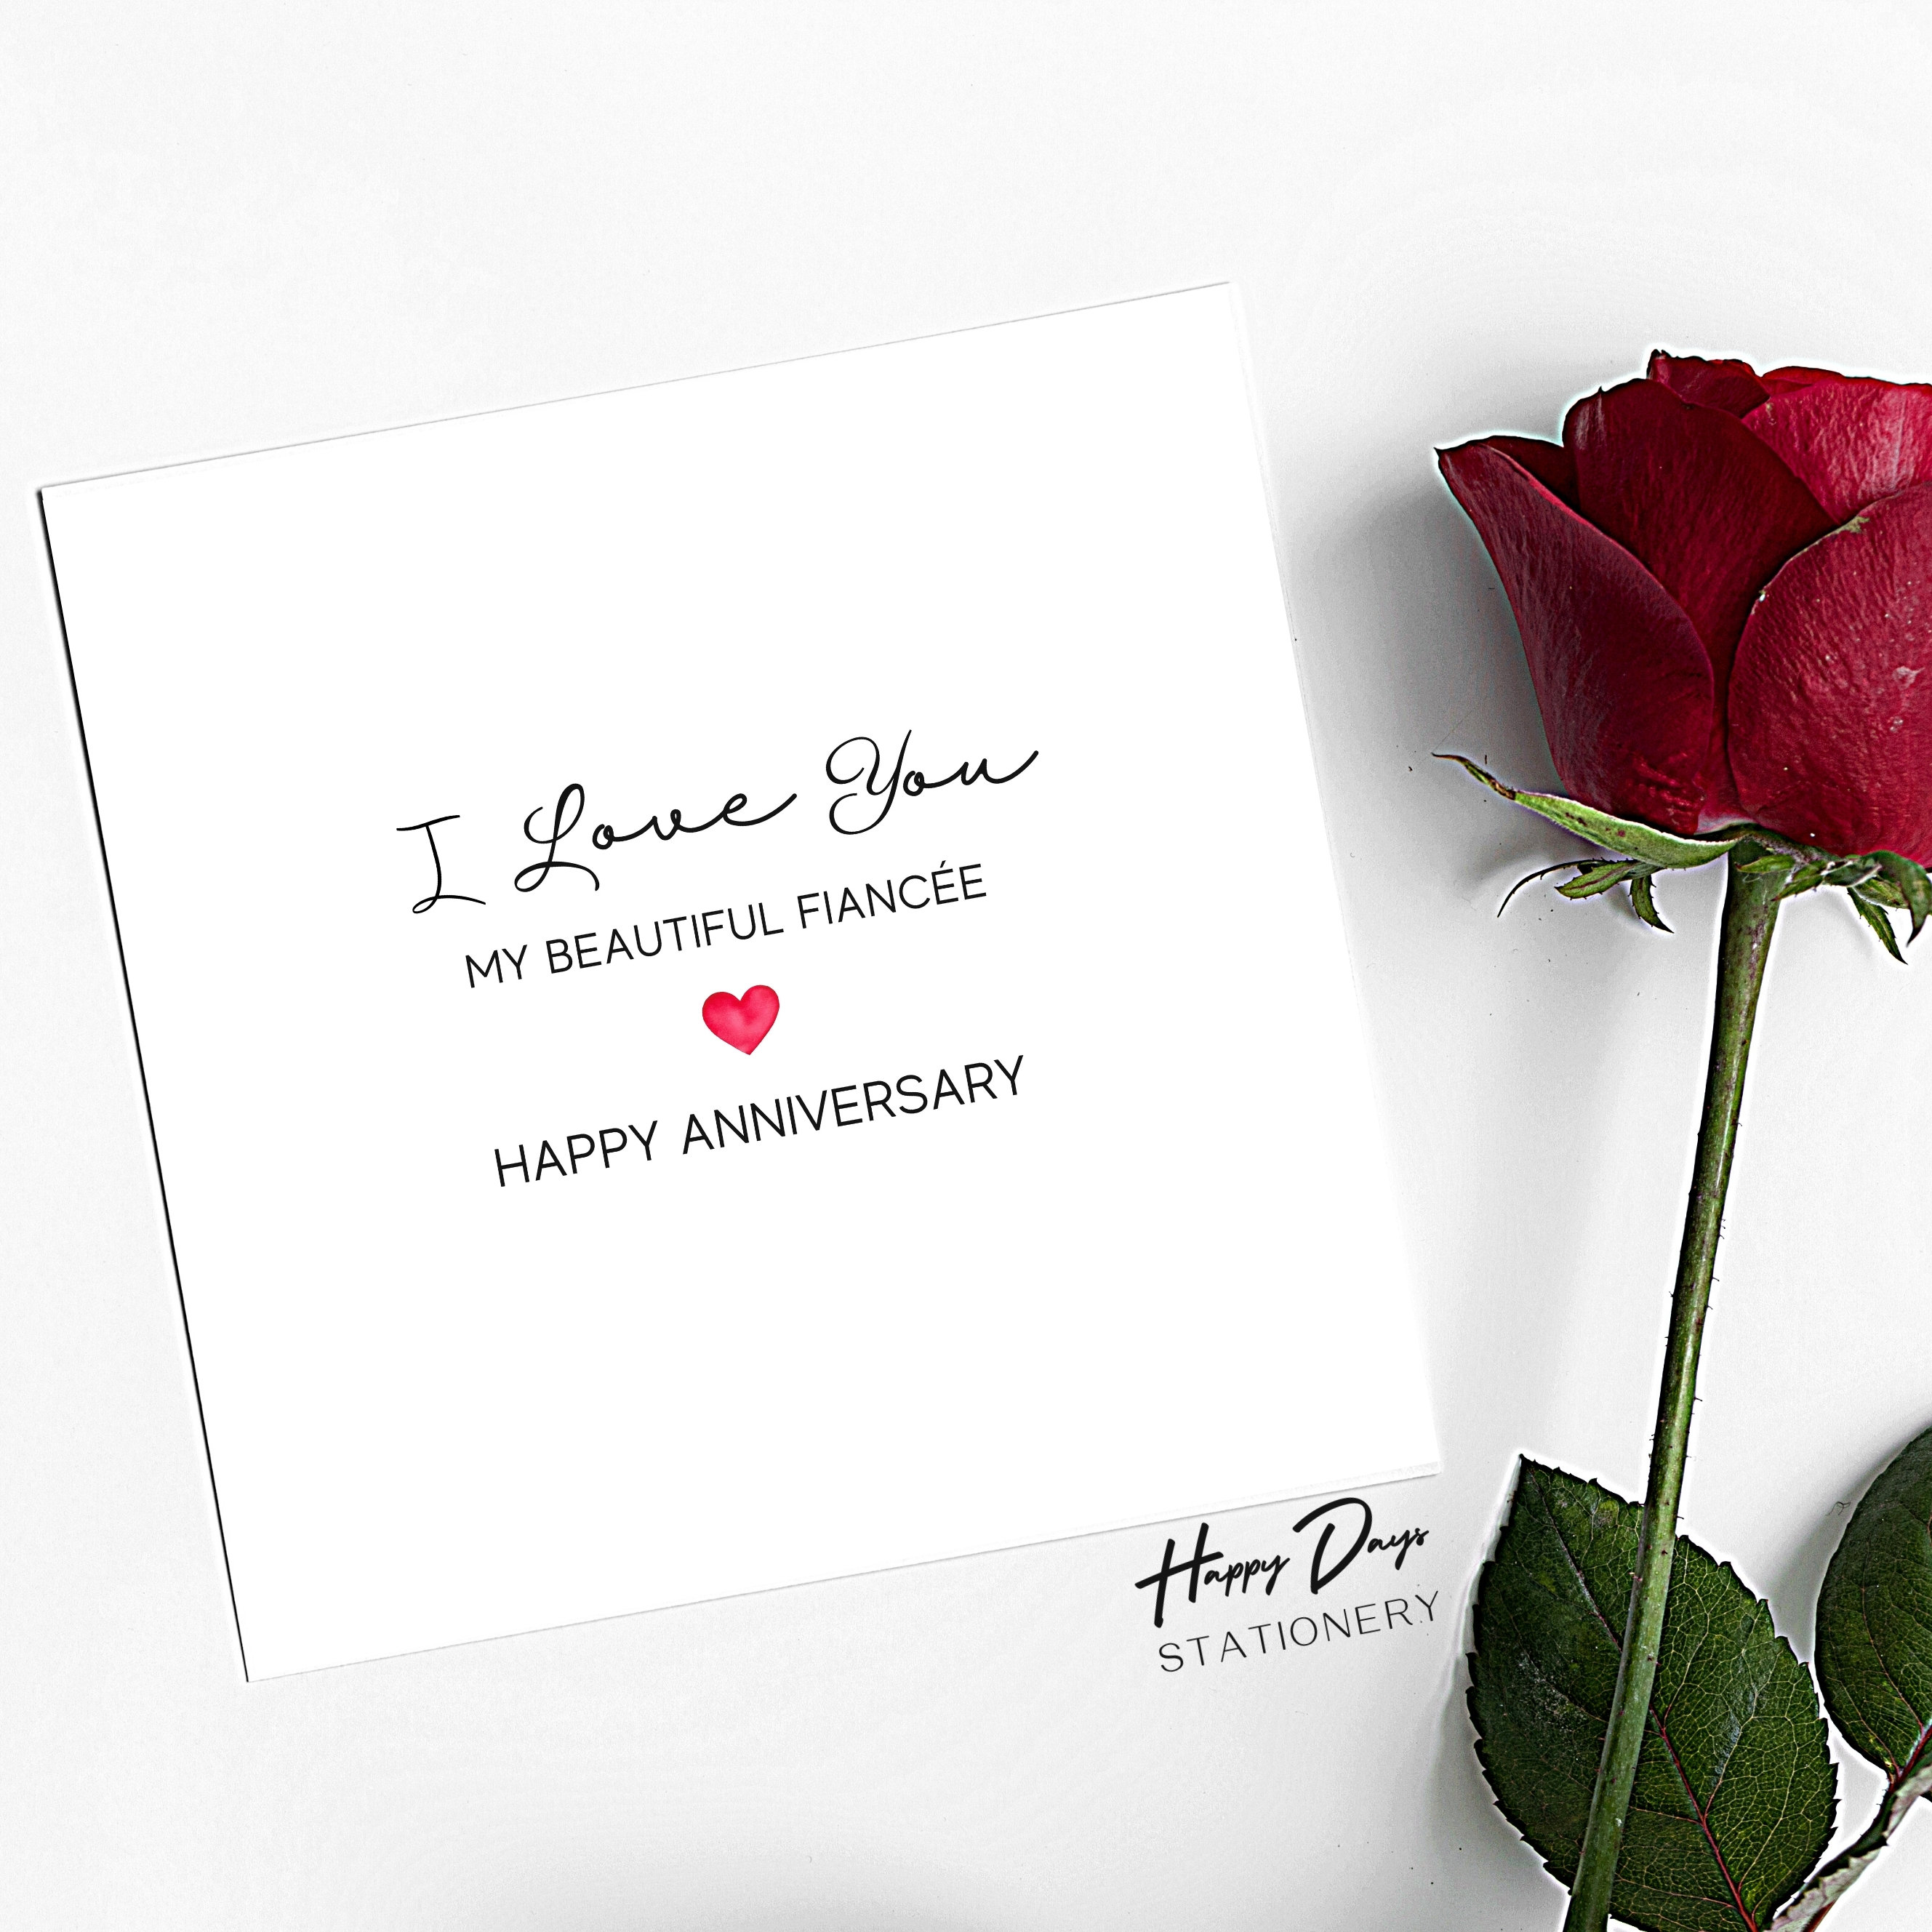 I Love You
MY BEAUTIFUL FIANCÉE
HAPPY ANNIVERSARY
Happy Days
STATIONERY